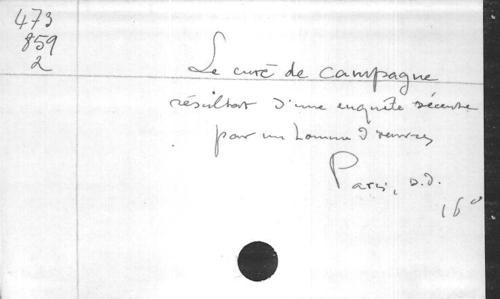 473
859
2
Le curé de campagne
résultat d'une enquête récente
par un homme d'œuvres
Paris, s.d.
16°